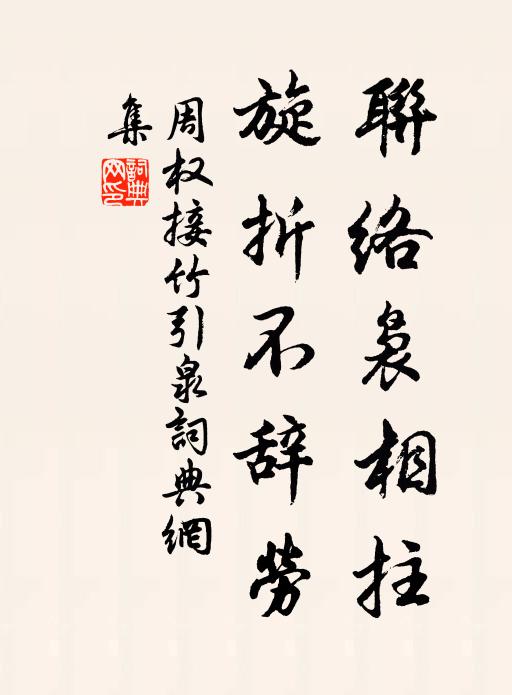 聯絡裊相拄
旋折不辞勞
周权接竹引泉詞典網
集
詞典
网印